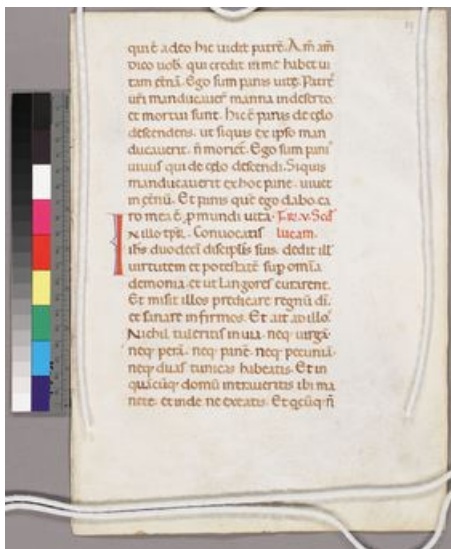 qui ē a deo hic uidit patrē. Am̄ am̄
dico uob̄. qui credit in me habet ui
tam ȩtnā. Ego sum panis uitȩ. Patrē
uri manducauer̄ manna in deserto.
et mortui sunt. hic ē panis de cȩlo
descendens. ut siquis ex ipso man
ducauerit. n̄ moriet̄. Ego sum pani᷒
uiuus qui de cȩlo descendi. Siquis
manducauerit ex hoc pane. uiuet
in ȩtnū. Et panis quē ego dabo. ca
ro mea ē ꝓ mundi uita. F.R.V. Scd̄
In illo tp̄r. Conuocatis lucam.
ihs duodecī discipl̄is suis. dedit ill᷒
uirtutem et potestatē sup om̄ia
demonia. et ut langores curarent.
Et misit illos predicare regnū dī.
et sanare infirmos. Et ait ad illos.
Nichil tuleritis in uia. neq; uirgā.
neq; perā. neq; panē. neq; pecuniā.
neq; duas tunicas habeatis. Et in
quācūq; domū intraueritis ibi ma
nete. et inde ne exeatis. Et qcūq; n̄